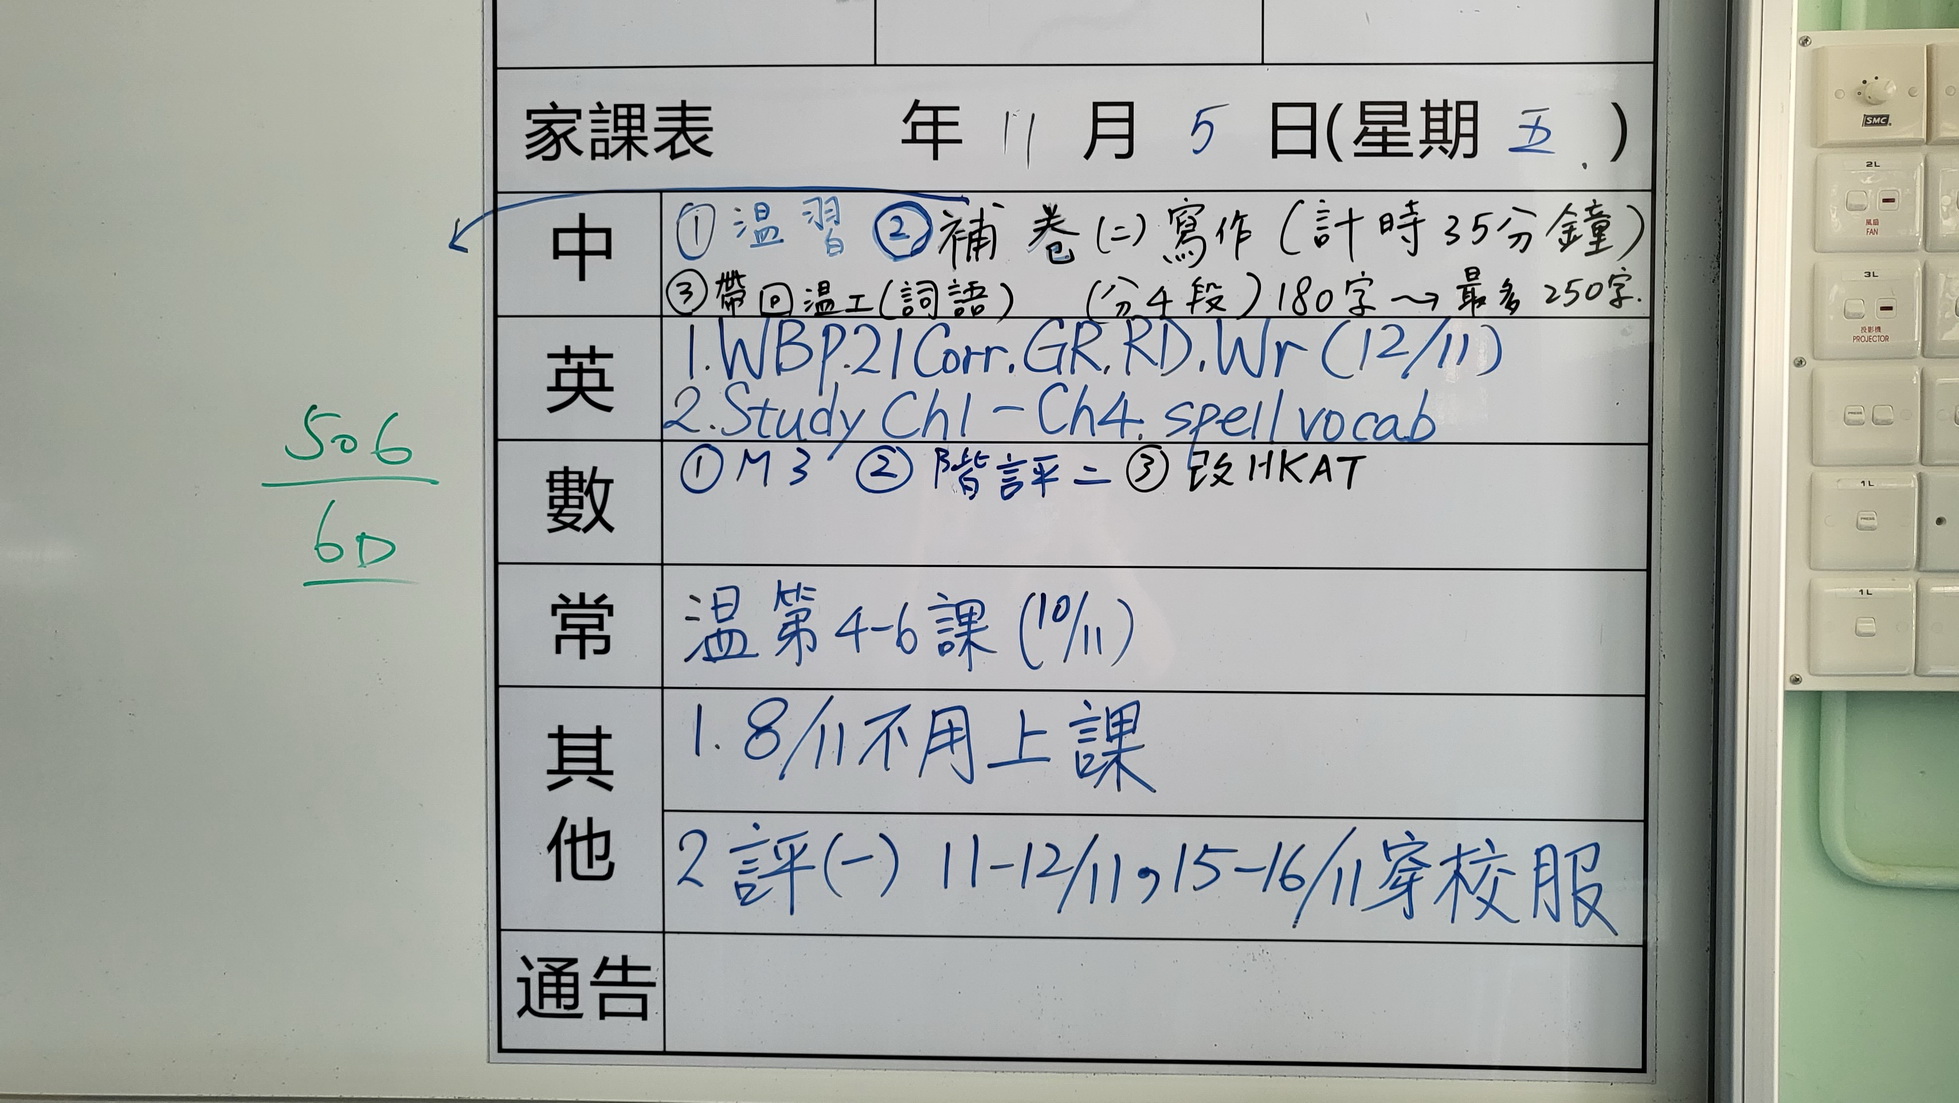 家課表 年 11 月 5 日(星期 五 )
中
① 温習 ② 補卷(二)寫作(計時35分鐘)
③帶回温工(詞語) (分4段)180字→最多250字.
英
1.WBp.21Corr.GR.RD.Wr(12/11)
2.Study Ch1-Ch4. spell vocab
數
① M3 ② 階評二 ③ 改HKAT
常
温第4-6課(10/11)
其他
1. 8/11不用上課
2 評(一) 11-12/11,15-16/11穿校服
通告
506
6D
SMC
2L
風扇
FAN
3L
投影機
PROJECTOR
PRESS
1L
PRESS
1L